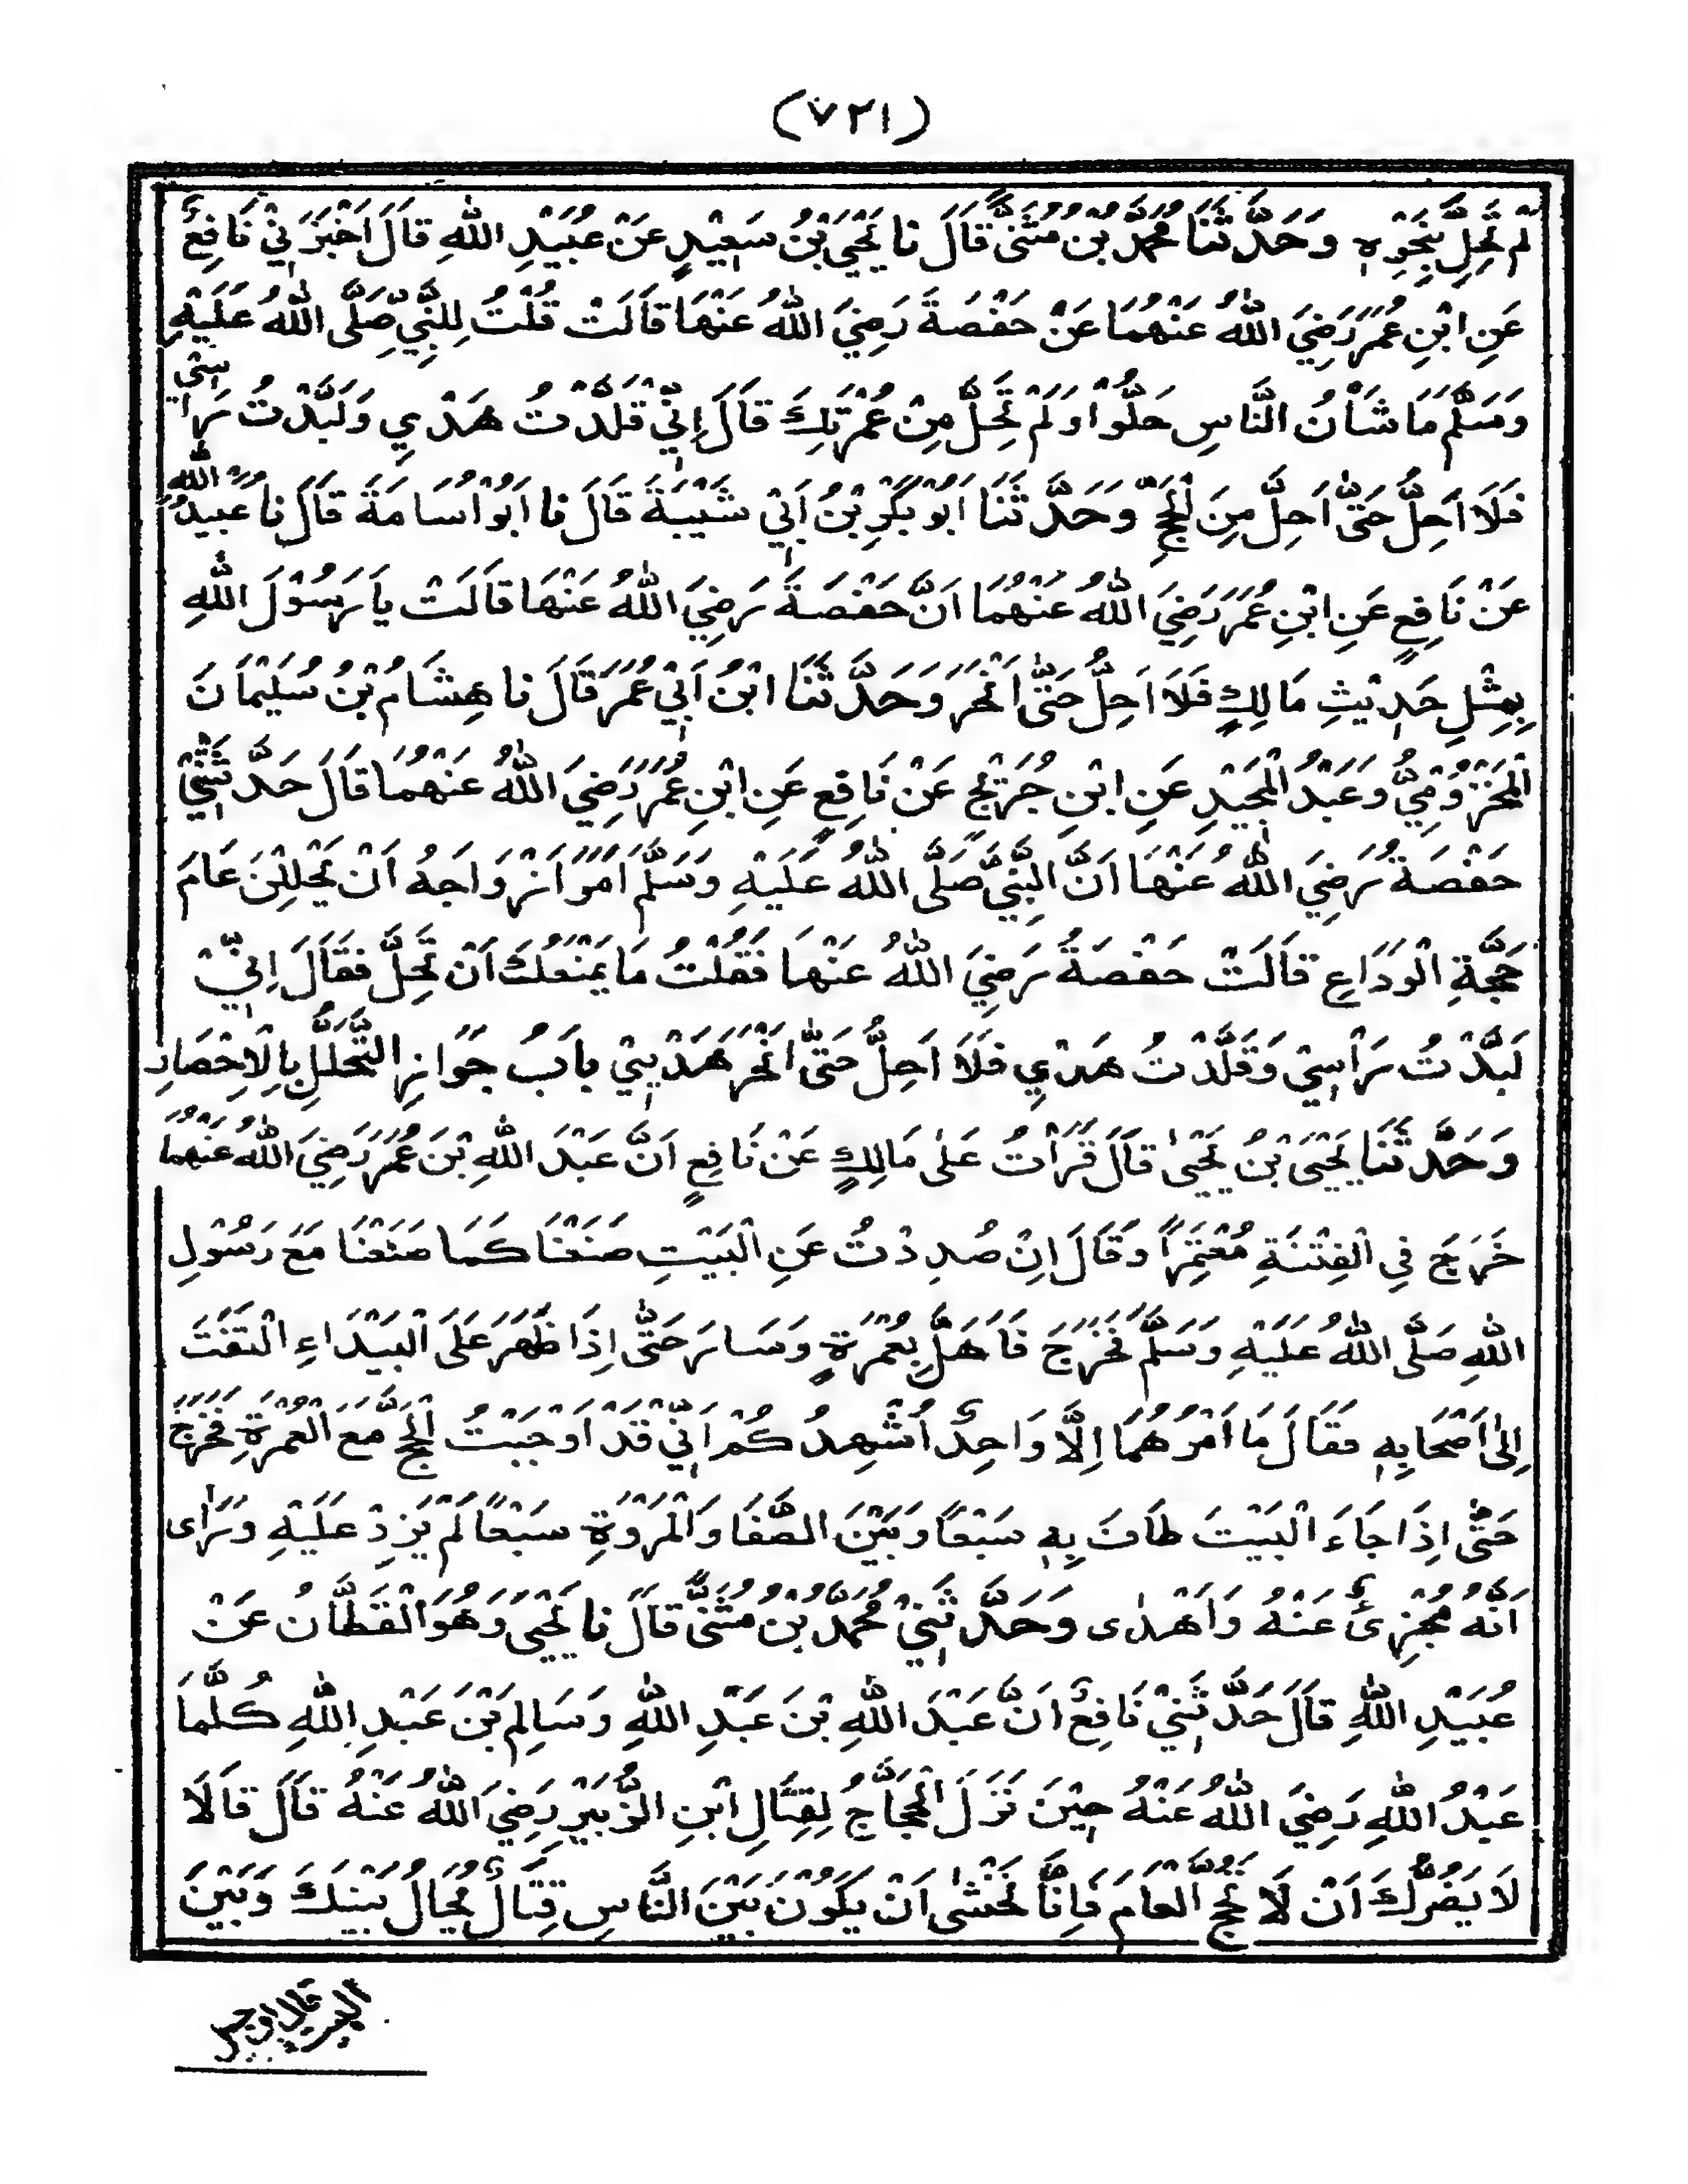 (٧٢١)
لَمْ تَحِلَّ بِنَحْوِهٖ وَحَدَّثَنَا مُحَمَّدُ بْنُ مُثَنًّى قَالَ نَا يَحْيَى بْنُ سَعِيْدٍ عَنْ عُبَيْدِ اللّٰهِ قَالَ اَخْبَرَنِيْ نَافِعٌ
عَنِ ابْنِ عُمَرَ رَضِيَ اللّٰهُ عَنْهُمَا عَنْ حَفْصَةَ رَضِيَ اللّٰهُ عَنْهَا قَالَتْ قُلْتُ لِلنَّبِيِّ صَلَّى اللّٰهُ عَلَيْهِ
وَسَلَّمَ مَا شَأْنُ النَّاسِ حَلُّوْا وَلَمْ تَحِلَّ مِنْ عُمْرَتِكَ قَالَ إِنِّيْ قَلَّدْتُ هَدْيِي وَلَبَّدْتُ رَاْسِيْ
فَلَا اَحِلُّ حَتّٰى اَحِلَّ مِنَ الْحَجِّ وَحَدَّثَنَا اَبُوْ بَكْرِ بْنُ اَبِيْ شَيْبَةَ قَالَ نَا اَبُوْ اُسَامَةَ قَالَ نَا عُبَيْدُ اللّٰهِ
عَنْ نَافِعٍ عَنِ ابْنِ عُمَرَ رَضِيَ اللّٰهُ عَنْهُمَا اَنَّ حَفْصَةَ رَضِيَ اللّٰهُ عَنْهَا قَالَتْ يَا رَسُوْلَ اللّٰهِ
بِمِثْلِ حَدِيْثِ مَالِكٍ فَلَا اَحِلُّ حَتّٰى اَنْحَرَ وَحَدَّثَنَا ابْنُ اَبِيْ عُمَرَ قَالَ نَا هِشَامُ بْنُ سُلَيْمَانَ
الْمَخْزُوْمِيُّ وَعَبْدُ الْمَجِيْدِ عَنِ ابْنِ جُرَيْجٍ عَنْ نَافِعٍ عَنِ ابْنِ عُمَرَ رَضِيَ اللّٰهُ عَنْهُمَا قَالَ حَدَّثَتْنِيْ
حَفْصَةُ رَضِيَ اللّٰهُ عَنْهَا اَنَّ النَّبِيَّ صَلَّى اللّٰهُ عَلَيْهِ وَسَلَّمَ اَمَرَ اَزْوَاجَهُ اَنْ يَّحْلِلْنَ عَامَ
حَجَّةِ الْوَدَاعِ قَالَتْ حَفْصَةُ رَضِيَ اللّٰهُ عَنْهَا فَقُلْتُ مَا يَمْنَعُكَ اَنْ تَحِلَّ فَقَالَ اِنِّيْ
لَبَّدْتُ رَاْسِيْ وَقَلَّدْتُ هَدْيِي فَلَا اَحِلُّ حَتّٰى اَنْحَرَ هَدْيِيْ بَابُ جَوَازِ التَّحَلُّلِ بِالْاِحْصَارِ
وَحَدَّثَنَا يَحْيَى بْنُ يَحْيٰى قَالَ قَرَأْتُ عَلٰى مَالِكٍ عَنْ نَافِعٍ اَنَّ عَبْدَ اللّٰهِ بْنَ عُمَرَ رَضِيَ اللّٰهُ عَنْهُمَا
خَرَجَ فِي الْفِتْنَةِ مُعْتَمِرًا وَقَالَ اِنْ صُدِدْتُ عَنِ الْبَيْتِ صَنَعْنَا كَمَا صَنَعْنَا مَعَ رَسُوْلِ
اللّٰهِ صَلَّى اللّٰهُ عَلَيْهِ وَسَلَّمَ فَخَرَجَ فَاَهَلَّ بِعُمْرَةٍ وَسَارَ حَتّٰى اِذَا ظَهَرَ عَلَى الْبَيْدَاءِ الْتَفَتَ
اِلٰى اَصْحَابِهٖ فَقَالَ مَا اَمْرُهُمَا اِلَّا وَاحِدٌ اُشْهِدُكُمْ اَنِّيْ قَدْ اَوْجَبْتُ الْحَجَّ مَعَ الْعُمْرَةِ فَخَرَجَ
حَتّٰى اِذَا جَاءَ الْبَيْتَ طَافَ بِهٖ سَبْعًا وَبَيْنَ الصَّفَا وَالْمَرْوَةِ سَبْعًا لَمْ يَزِدْ عَلَيْهِ وَرَاٰى
اَنَّهُ مُجْزِئٌ عَنْهُ وَاَهْدٰى وَحَدَّثَنِيْ مُحَمَّدُ بْنُ مُثَنًّى قَالَ نَا يَحْيٰى وَهُوَ الْقَطَّانُ عَنْ
عُبَيْدِ اللّٰهِ قَالَ حَدَّثَنِيْ نَافِعٌ اَنَّ عَبْدَ اللّٰهِ بْنَ عَبْدِ اللّٰهِ وَسَالِمَ بْنَ عَبْدِ اللّٰهِ كَلَّمَا
عَبْدَ اللّٰهِ رَضِيَ اللّٰهُ عَنْهُ حِيْنَ نَزَلَ الْحَجَّاجُ لِقِتَالِ ابْنِ الزُّبَيْرِ رَضِيَ اللّٰهُ عَنْهُ قَالَ قَالَا
لَا يَضُرُّكَ اَنْ لَّا تَحُجَّ الْعَامَ فَاِنَّا نَخْشٰى اَنْ يَكُوْنَ بَيْنَ النَّاسِ قِتَالٌ يُحَالُ بَيْنَكَ وَبَيْنَ
البيت قال